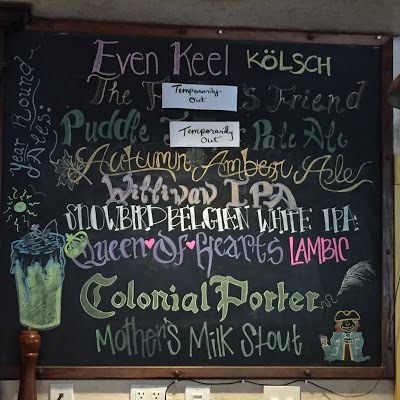 Year Round
Ales:
Even Keel KÖLSCH
The F
Temporarily
Out
's Friend
Puddle
Temporarily
Out
Pale Ale
Autumn Amber Ale
Williwaw IPA
SNOWBIRD BELGIAN WHITE IPA
Queen of Hearts LAMBIC
Colonial Porter
Mother's Milk Stout